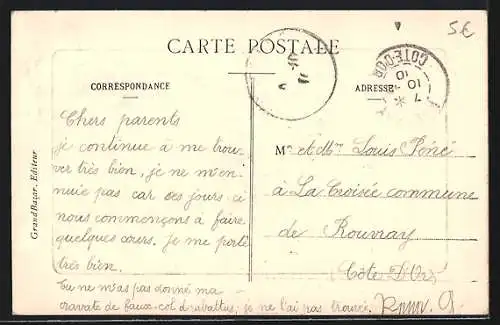 5€
CARTE POSTALE
CORRESPONDANCE
ADRESSE
COTE-D'OR
7 *
10
10
Grand Bazar. Editeur
Chers parents
je continue à me trou-
ver très bien, je ne m'en-
nuie pas car ces jours ci
nous commençons à faire
quelques cours. je me porte
très bien.
tu ne m'as pas donné ma
cravate de faux-col drabattus; je ne l'ai pas trouvée.
Mr et Mme Louis
à La Croisée commune
de Rouvray
(Côte D'Or)